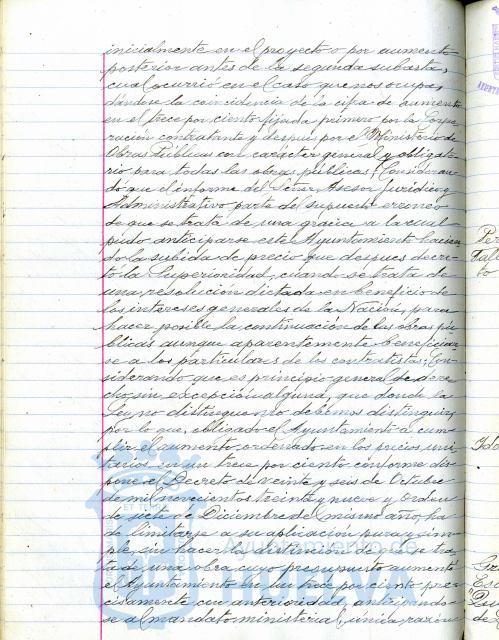 inicialmente en el proyecto o por aumento
posterior antes de la segunda subasta,
cual ocurrió en el caso que nos ocupa,
dándose la coincidencia de la cifra de aumento
en el trece por ciento fijada primero por la Corpo
ración contratante y despues por el Ministerio de
Obras Públicas con carácter general y obligato
rio para todas las obras públicas; Consideran
do que el informe del Señor Asesor Jurídico
Administrativo parte del supuesto erroneo
de que se trata de una gracia a la cual
pudo anticiparse este Ayuntamiento hacien
do la subida de precio que despues decre
tó la Superioridad, cuando se trata de
una resolución dictada en beneficio de
los intereses generales de la Nación, para
hacer posible la continuación de las obras pú
blicas aunque aparentemente beneficiar
se a los particulares de los contratistas; Con
siderando que es principio general de dere
cho sin excepción alguna, que donde la
Ley no distingue no debemos distinguir,
por lo que, obligado el Ayuntamiento a cum
plir el aumento ordenado en los precios uni
tarios en un trece por ciento conforme dis
pone el Decreto de veinte y seis de Octubre
de mil novecientos treinta y nueve y Orden
de siete de Diciembre del mismo año, ha
de limitarse a su aplicación pura y sim
ple, sin hacer la distinción de que se tra
ta de una obra cuyo presupuesto aumentó
el Ayuntamiento en un trece por ciento pre
cisamente con anterioridad, anticipando-
se al mandato ministerial, única razón
Ayuntamiento de
HUELVA